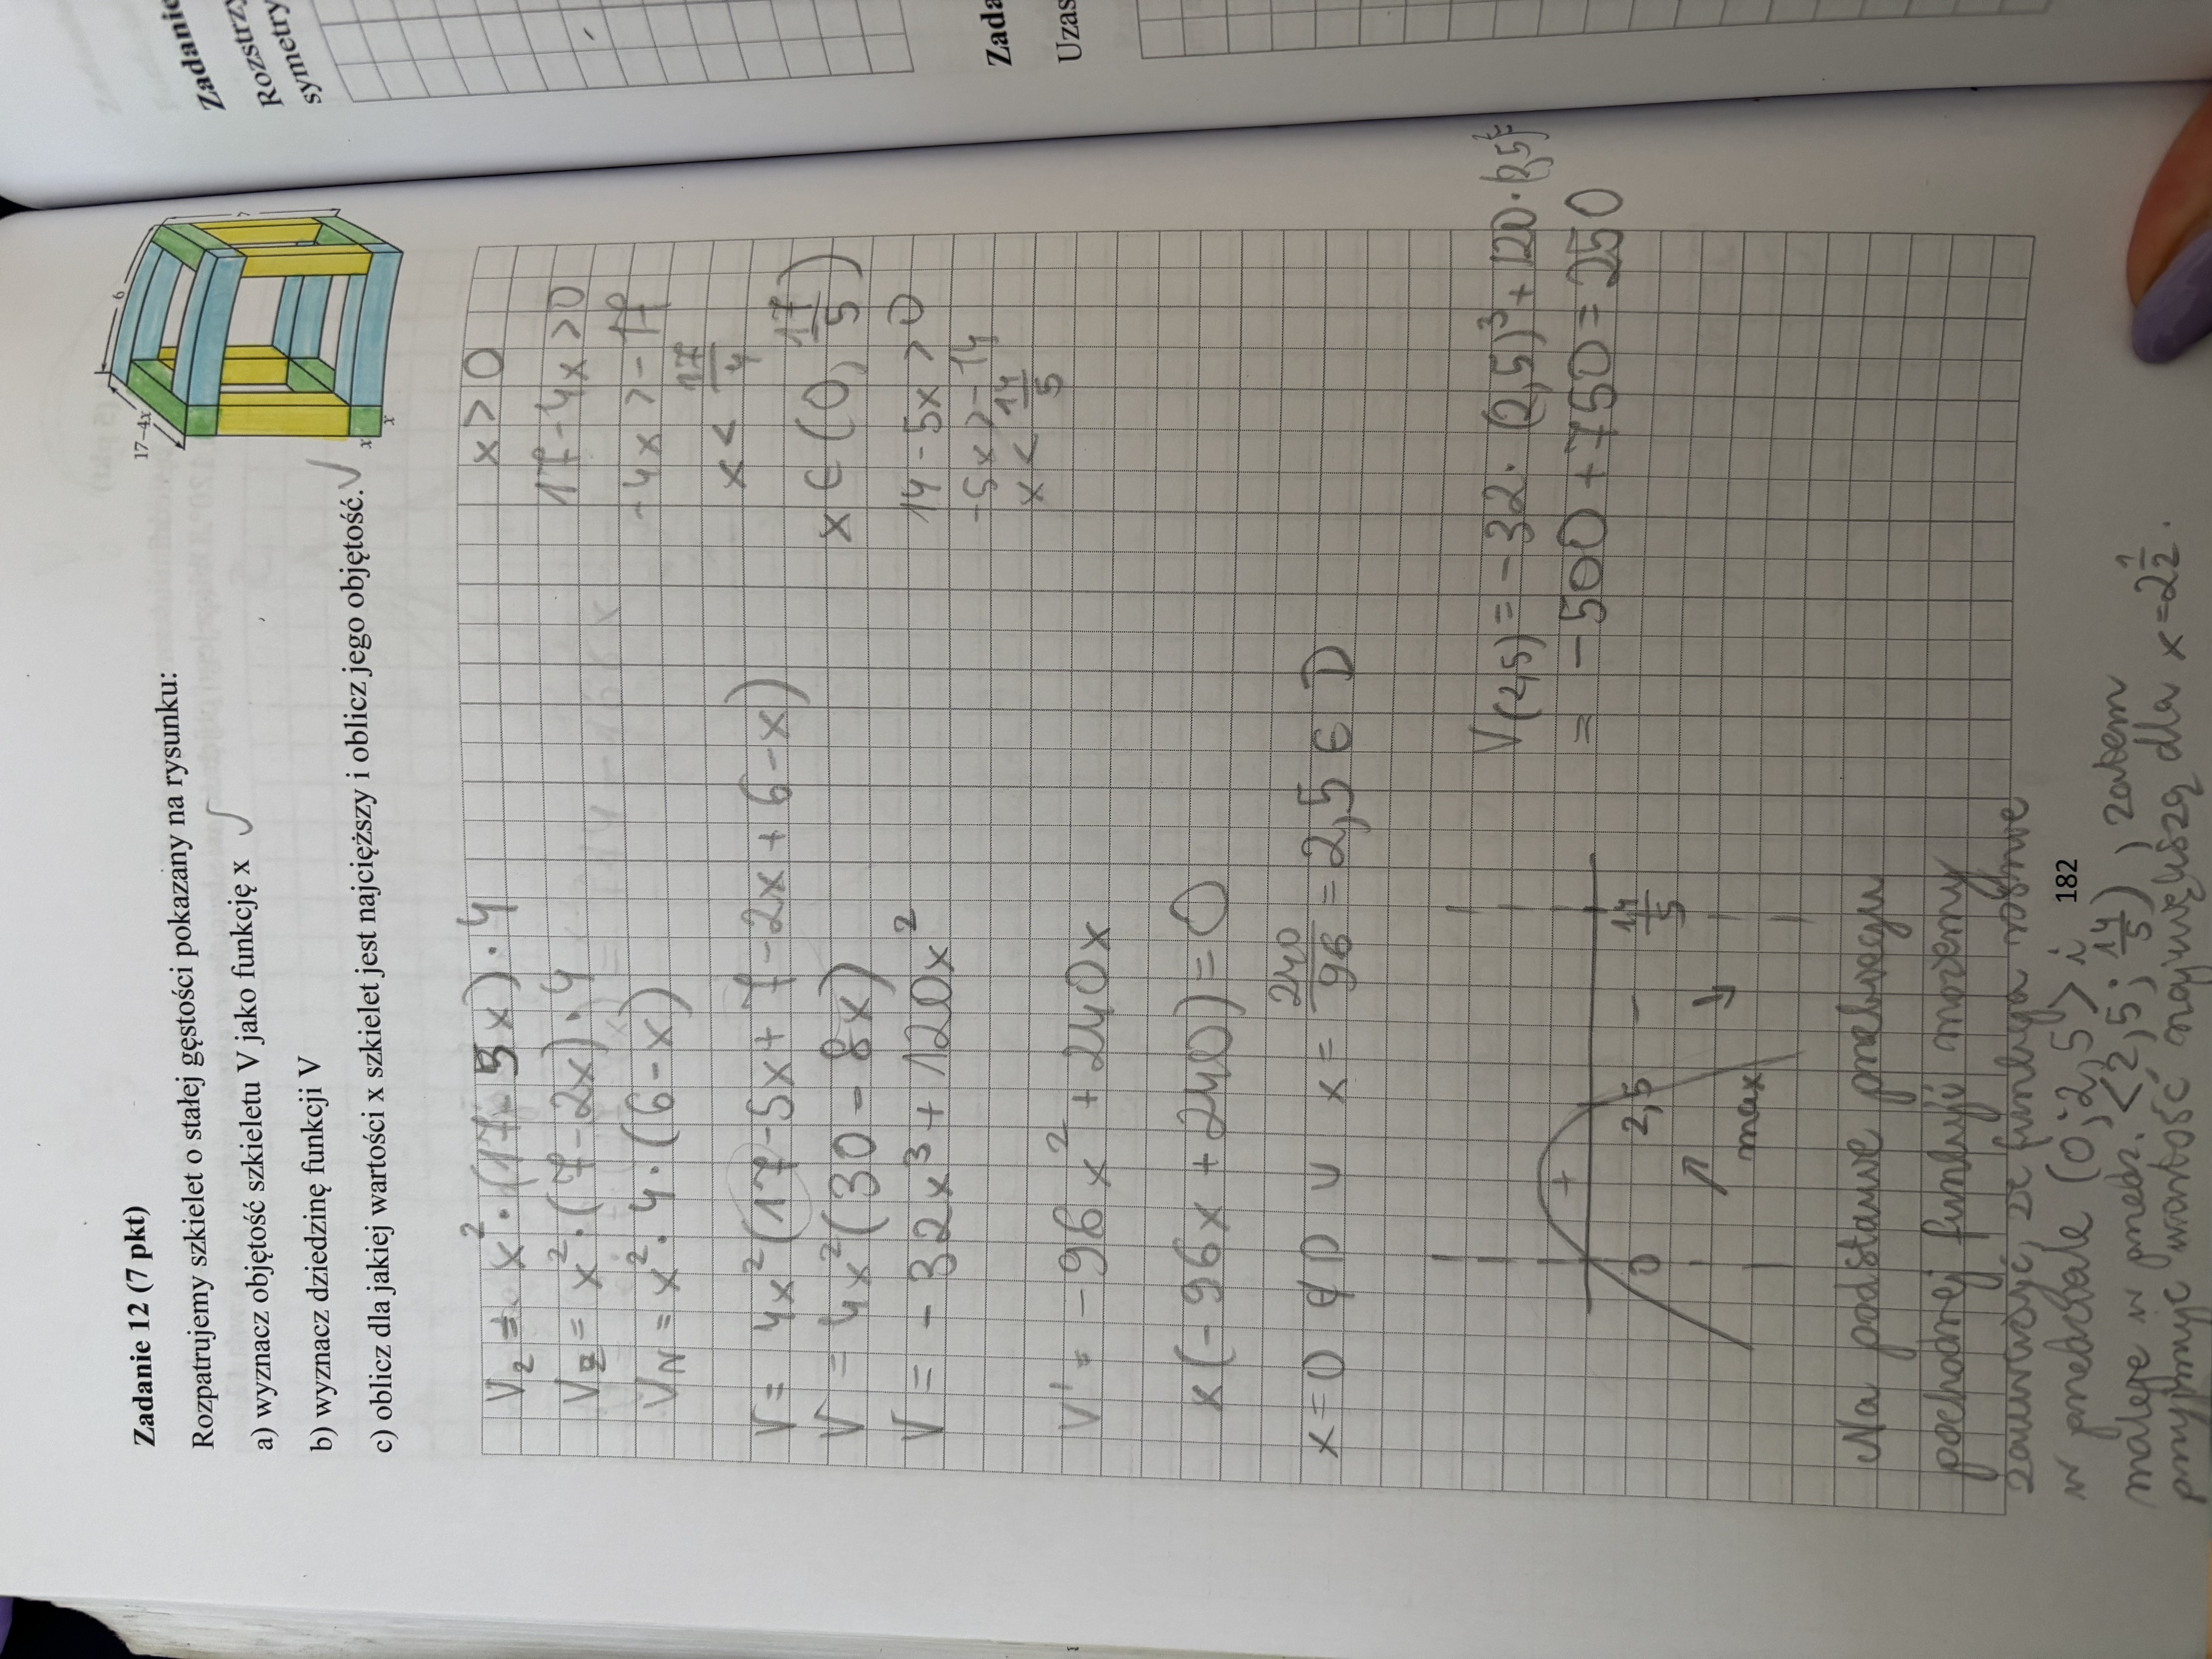 Zadanie 12 (7 pkt)
Rozpatrujemy szkielet o stałej gęstości pokazany na rysunku:
a) wyznacz objętość szkieletu V jako funkcję x
b) wyznacz dziedzinę funkcji V
c) oblicz dla jakiej wartości x szkielet jest najcięższy i oblicz jego objętość.
17-4x
6
7
x
x
V₂ = x²·(17-5x)·4
V = x²·(7-2x)·4
V_N = x²·4·(6-x)
V = 4x²(17-5x+7-2x+6-x)
V = 4x²(30-8x)
V = -32x³+120x²
V' = -96x²+240x
x(-96x+240)=0
x=0 ∉ D ∪ x = 240/96 = 2,5 ∈ D
x>0
17-4x>0
-4x>-17
x< 17/4
x∈(0, 17/5)
14-5x>0
-5x>-14
x< 14/5
V(2,5) = -32·(2,5)³+120·(2,5)²
= -500+750=250
+
0 2,5 - 14/5
↗ ↘
max
Na podstawie przebiegu
pochodnej funkcji możemy
zauważyć, że funkcja rośnie
w przedziale (0; 2,5> i
maleje w przedz. <2,5; 14/5) zatem
przyjmuje wartość największą dla x=2 1/2.
182
Zadanie
Rozstrzy
symetry
Zada
Uzas